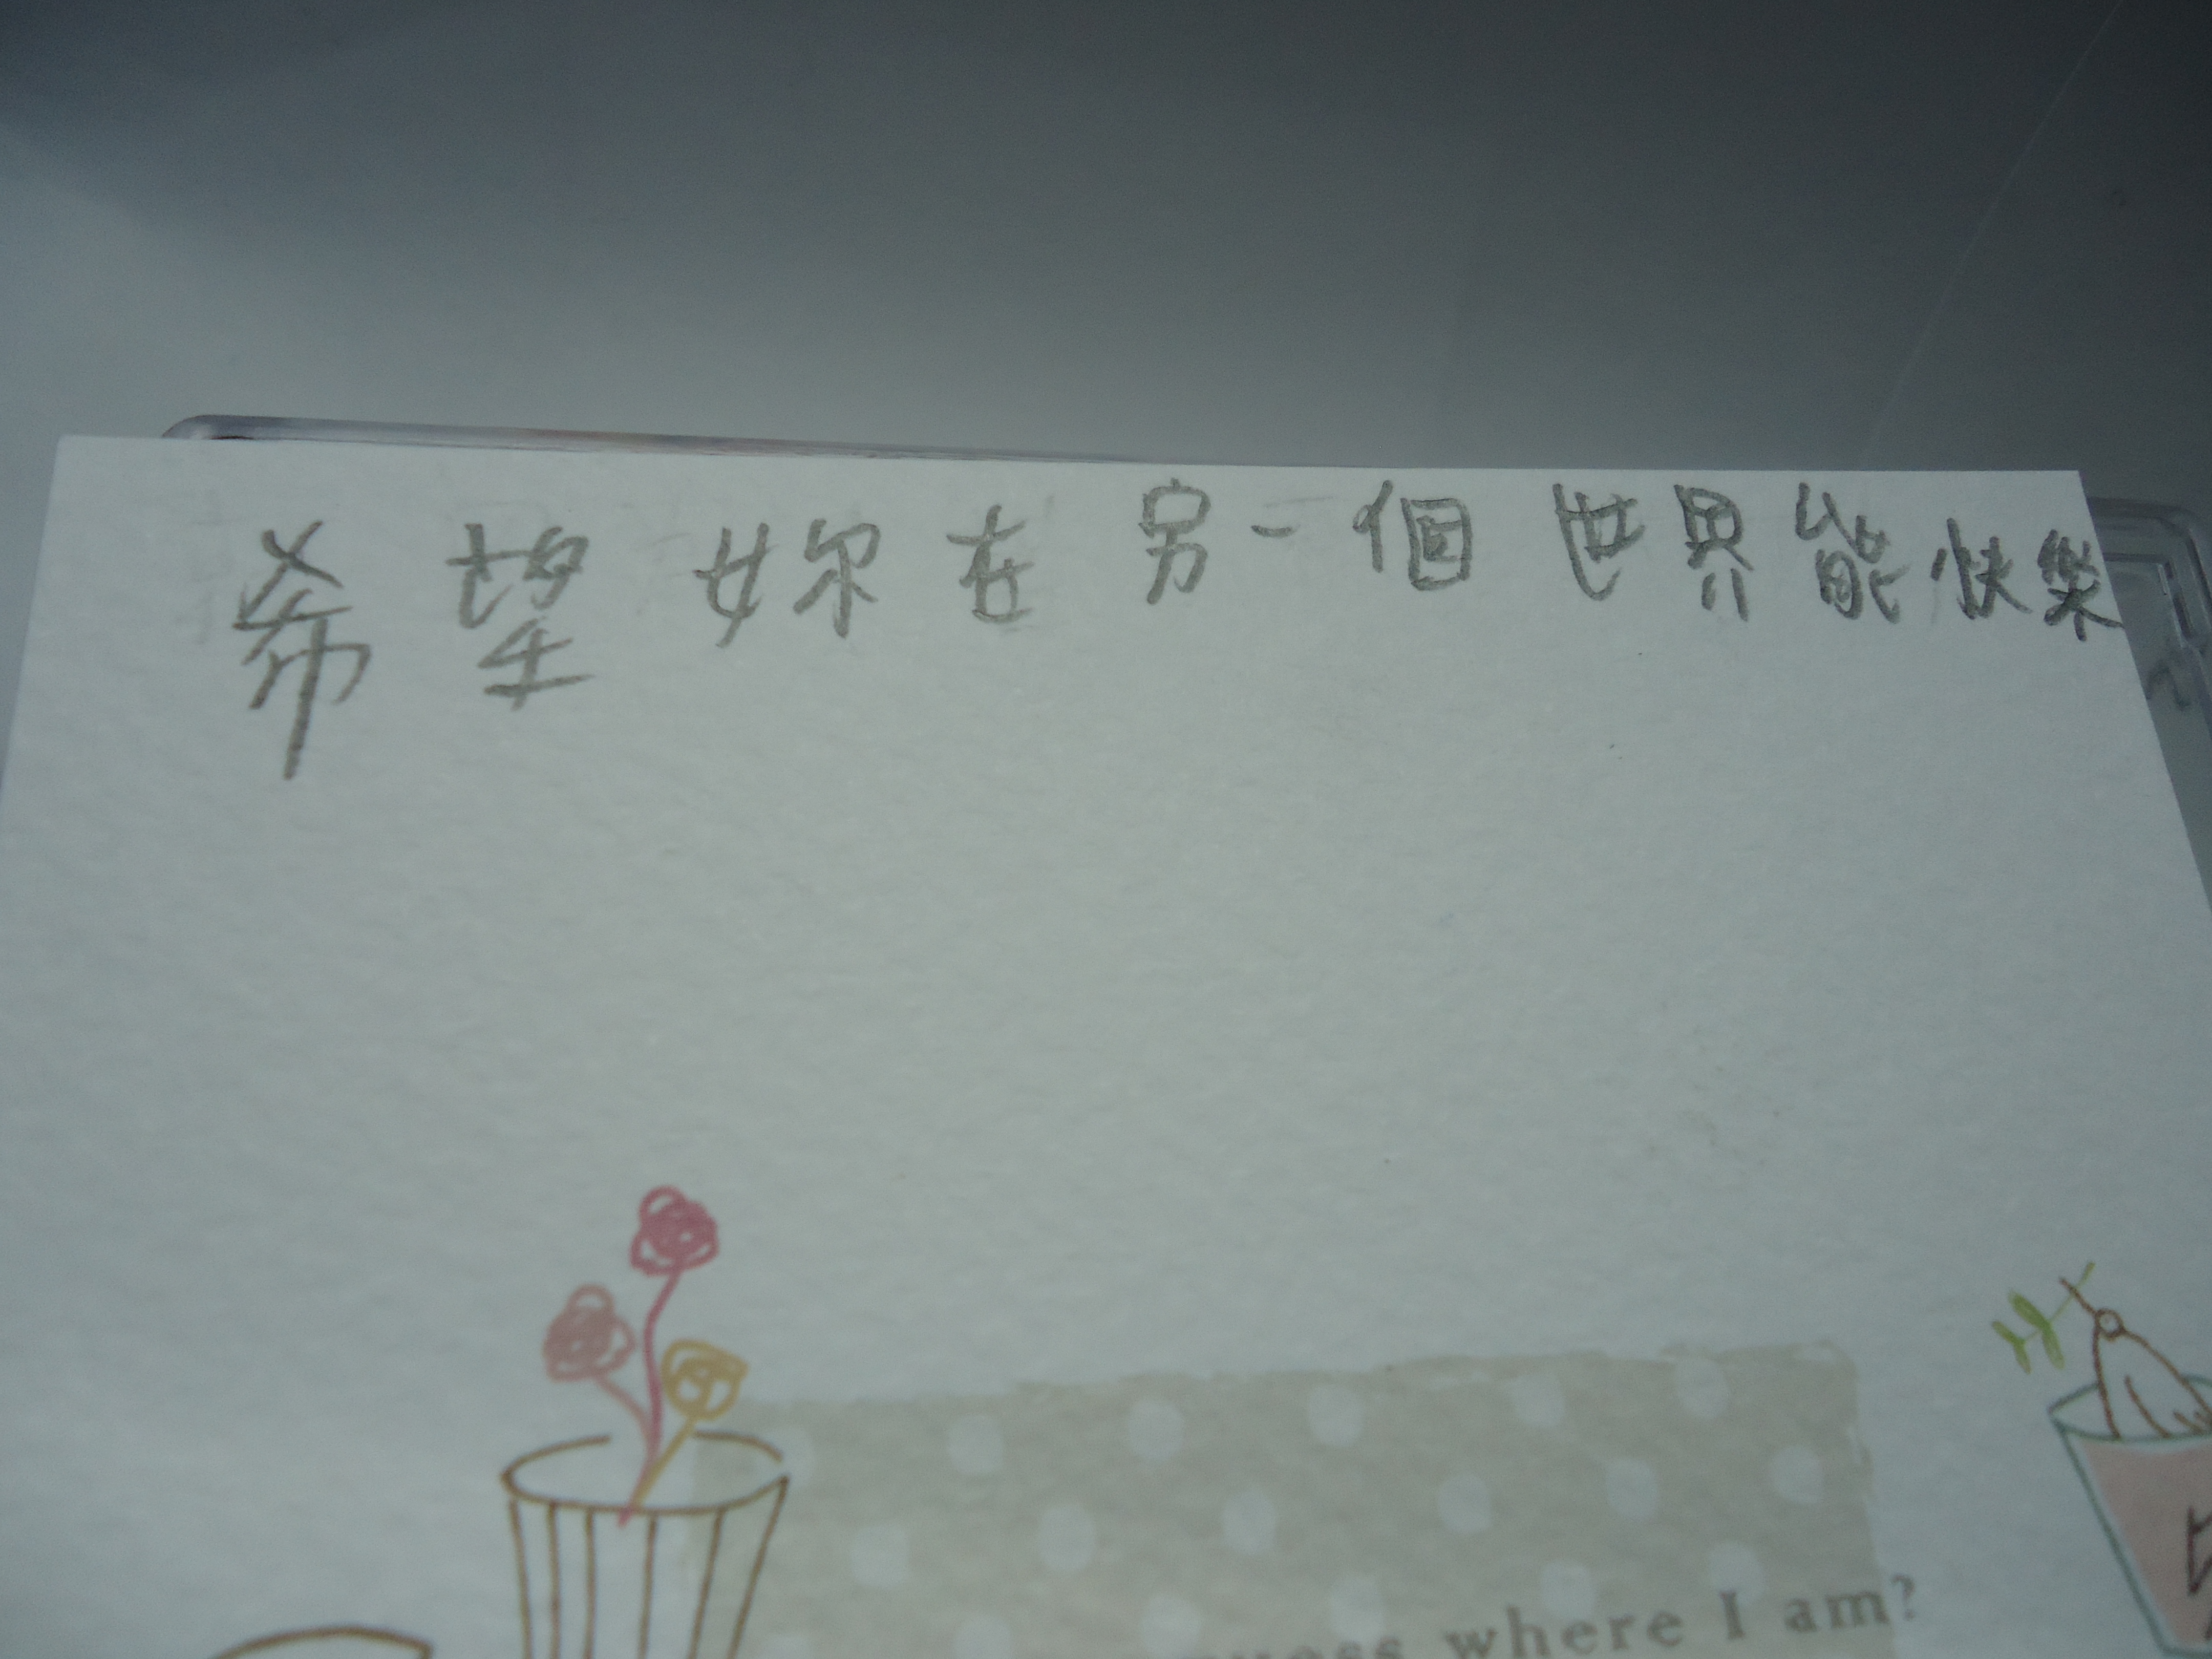 希望妳在另一個世界能快樂
where I am?